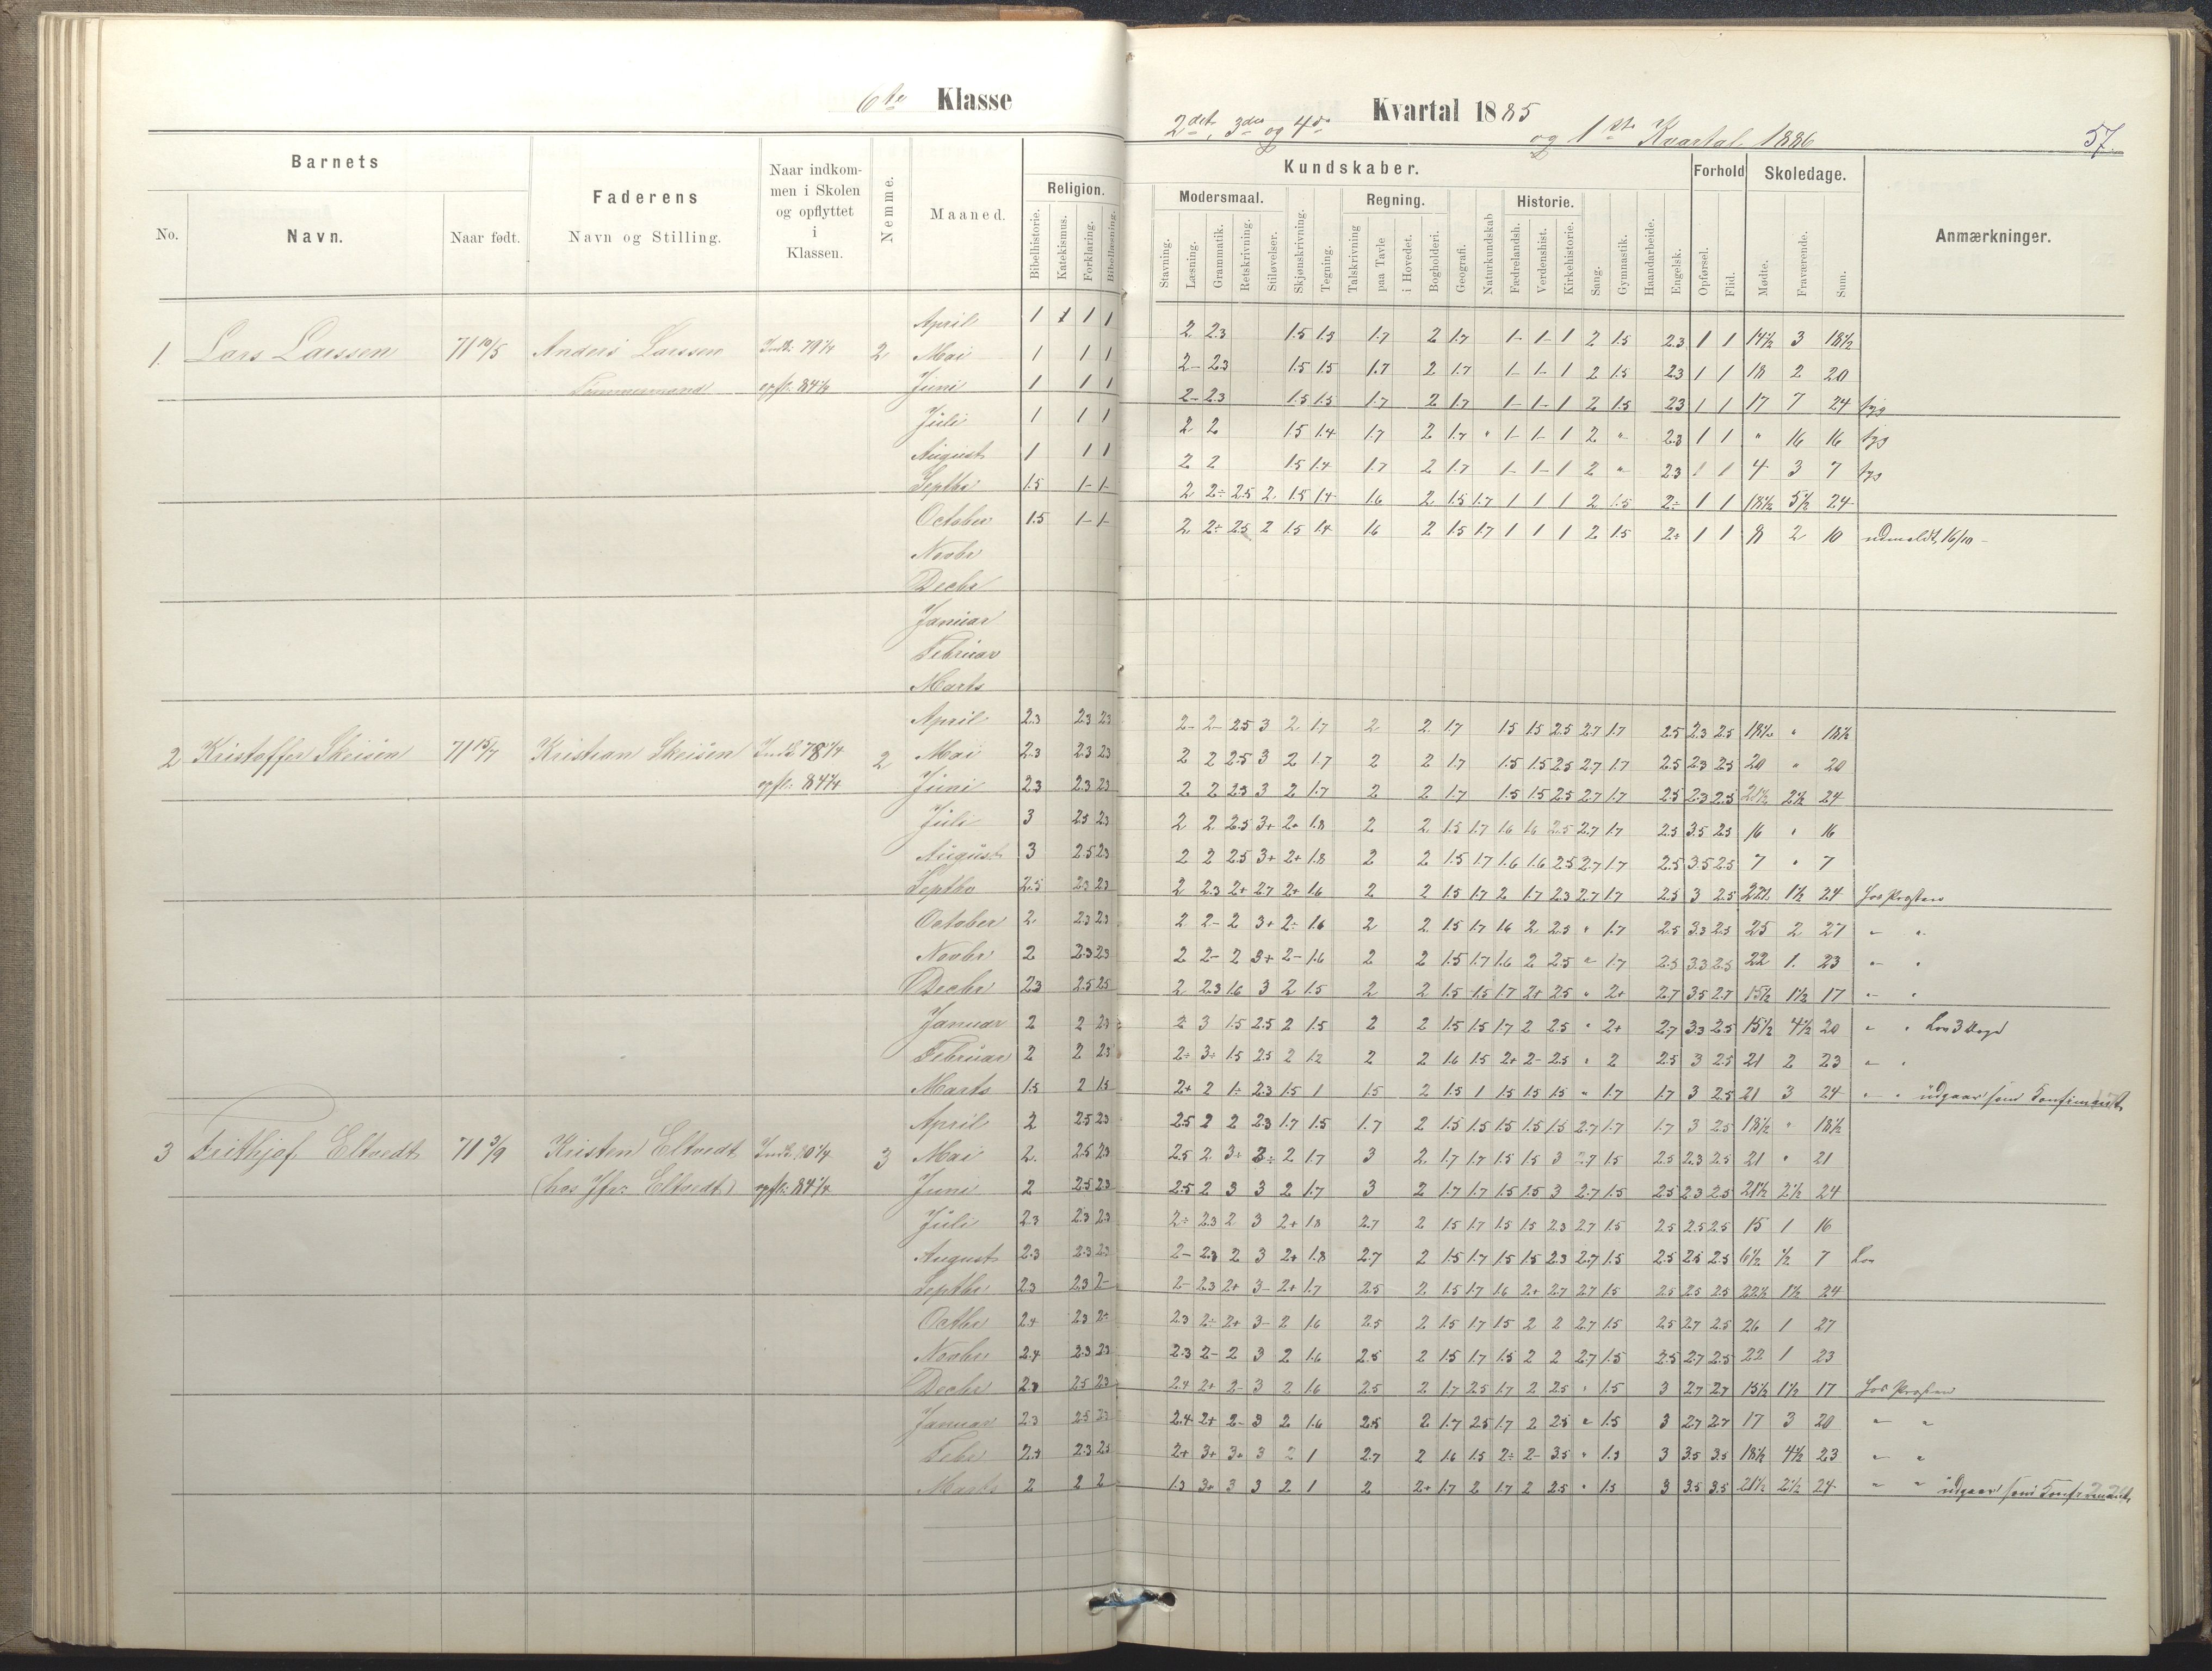 6te Klasse
2det, 3die og 4de Kvartal 1885
og 1ste Kvartal 1886
57
Barnets
Faderens
Naar indkommen i Skolen og opflyttet i Klassen.
Nemme.
Maaned.
Kundskaber.
Forhold
Skoledage.
Anmærkninger.
No. Navn. Naar født. Navn og Stilling.
Religion. Modersmaal. Regning. Historie.
Bibelhistorie. Katekismus. Forklaring. Bibellæsning. Stavning. Læsning. Grammatik. Retskrivning. Stiløvelser. Skjønskrivning. Tegning. Talskrivning paa Tavle i Hovedet. Bogholderi. Geografi. Naturkundskab Fædrelandsh. Verdenshist. Kirkehistorie. Sang. Gymnastik. Haandarbeide. Engelsk. Opførsel. Flid. Mødte. Fraværende. Sum.
April 1 1 1 1 2 2.3 1.5 1.5 1.7 2 1.7 1- 1- 1 2 1.5 2.3 1 1 14½ 3 18½
1. Lars Larssen 71 Anders Larssen Indk. 79 2 Mai 1 1 1 2- 2.3 1.5 1.5 1.7 2 1.7 1- 1- 1 2 1.5 2.3 1 1 18 2 20
Tømmermand opfl. 84 Juni 1 1 1 2- 2.3 1.5 1.5 1.7 2 1.7 1- 1- 1 2 1.5 2.3 1 1 17 7 24 syg
Juli 1 1 1 2 2 1.5 1.4 1.7 2 1.7 " 1- 1- 1 2 " 2.3 1 1 " 16 16 syg
August 1 1 1 2 2 1.5 1.4 1.7 2 1.7 1- 1- 1 2 " 2.3 1 1 4 3 7 syg
Septbr 1.5 1- 1- 2 2÷ 2.5 2 1.5 1.4 1.6 2 1.5 1.7 1 1 1 2 1.5 2÷ 1 1 18½ 5½ 24
October 1.5 1- 1- 2 2÷ 2.5 2 1.5 1.4 1.6 2 1.5 1.7 1 1 1 2 1.5 2÷ 1 1 8 2 10 udmeldt 16/10
Novbr
Decbr
Januar
Februar
Marts
April 2.3 2.3 2.3 2- 2- 2.5 3 2 1.7 2 2 1.7 1.5 1.5 2.5 2.7 1.7 2.5 2.3 2.5 18½ " 18½
2 Kristoffer Skeisen 71 15/7 Kristian Skeisen Indk 78 2 Mai 2.3 2.3 2.3 2 2 2.5 3 2 1.7 2 2 1.7 1.5 1.5 2.5 2.7 1.7 2.5 2.3 2.5 20 " 20
opfl. 84 Juni 2.3 2.3 2.3 2 2 2.3 3 2 1.7 2 2 1.7 1.5 1.5 2.5 2.7 1.7 2.5 2.3 2.5 21½ 2½ 24
Juli 3 2.5 2.3 2 2 2.5 3+ 2+ 1.8 2 2 1.5 1.7 1.6 1.6 2.5 2.7 1.7 2.5 3.5 2.5 16 " 16
August 3 2.5 2.3 2 2 2.5 3+ 2+ 1.8 2 2 1.5 1.7 1.6 1.6 2.5 2.7 1.7 2.5 3.5 2.5 7 " 7
Septbr 2.5 2.3 2.3 2 2.3 2+ 2.7 2+ 1.6 2 2 1.5 1.7 2 1.7 2.3 2.7 1.7 2.5 3 2.5 22½ 1½ 24 hos Prosten
October 2 2.3 2.3 2 2- 2 3+ 2÷ 1.6 2 2 1.5 1.7 1.6 2 2.5 " 1.7 2.5 3.3 2.5 25 2 27 " "
Novbr 2 2.3 2.3 2 2- 2 3+ 2- 1.6 2 2 1.5 1.7 1.6 2 2.5 " 1.7 2.5 3.3 2.5 22 1 23 " "
Decbr 2.3 2.5 2.5 2 2.3 1.6 3 2 1.5 2 2 1.5 1.5 1.7 2+ 2.5 " 2+ 2.7 3.5 2.7 15½ 1½ 17 " "
Januar 2 2 2.3 2 3 1.5 2.5 2 1.5 2 2 1.5 1.5 1.7 2 2.5 " 2+ 2.7 3.3 2.5 15½ 4½ 20 " " Lov 3 Dage
Februar 2 2 2.3 2÷ 3÷ 1.5 2.5 2 1.2 2 2 1.6 1.5 2+ 2- 2.5 " 2 2.5 3 2.5 21 2 23 " "
Marts 1.5 2 1.5 2+ 2 1÷ 2.3 1.5 1 1.5 2 1.5 1 1.5 1.5 1.5 " 1.7 1.7 3 2.5 21 3 24 " " udgaar som Konfirmant
April 2 2.5 2.3 2.5 2 2 2.3 1.7 1.5 1.7 2 1.5 1.5 1.5 1.5 1.5 2.7 1.7 1.7 3 2.5 18½ " 18½
3 Frithjof Eltvedt 71 3/9 Kristen Eltvedt Indk. 3 Mai 2 2.5 2.3 2.5 2 3÷ 3÷ 2 1.7 3 2 1.7 1.7 1.5 1.5 3 2.7 1.5 2.5 2.3 2.5 21 " 21
(hos Jfr. Eltvedt) opfl. 84 Juni 2 2.5 2.3 2.5 2 3 3 2 1.7 3 2 1.7 1.7 1.5 1.5 3 2.7 1.5 2.5 2.3 2.5 21½ 2½ 24
Juli 2.3 2.3 2.3 2÷ 2.3 2 3 2+ 1.8 2.7 2 1.5 1.7 1.5 1.5 2.3 2.7 1.5 2.5 2.5 2.5 15 1 16
August 2.3 2.3 2.3 2- 2.3 2 3 2+ 1.8 2.7 2 1.5 1.7 1.5 1.5 2.3 2.7 1.5 2.5 2.5 2.5 6½ ½ 7 Lov
Septbr 2.3 2.3 2- 2- 2.3 2+ 3- 2+ 1.7 2.5 2 1.5 1.7 1.6 2+ 2.7 2.7 1.5 2.5 2.5 2.5 22½ 1½ 24
Octbr 2.4 2.3 2÷ 2.3 2÷ 2+ 3- 2 1.6 2.5 2 1.5 1.7 1.5 2 2 2.7 1.5 2.5 2.7 2.5 26 1 27
Novbr 2.4 2.3 2.3 2.3 2- 2 3 2 1.6 2.5 2 1.5 1.7 1.5 2 2 2.7 1.5 2.5 2.7 2.5 22 1 23
Decbr 2.3 2.5 2.3 2.4 2+ 2- 3 2 1.6 2.5 2 1.7 2.5 1.7 2 2.5 " 1.5 3 2.7 2.7 15½ 1½ 17 hos Prosten
Januar 2.3 2.5 2.3 2.4 2+ 2- 3 2 1.6 2.5 2 1.7 2.5 1.7 2 2.5 " 1.5 3 2.7 2.7 17 3 20 " "
Febr 2.4 2.3 2.3 2+ 3+ 3+ 3 2 1 2.7 2 1.6 1.5 2÷ 2- 3.5 " 1.3 3 3.5 3.5 18½ 4½ 23 " "
Marts 2 2 2 1.3 3+ 3 3 2 1 2 2+ 1.7 2 1.7 2 2.5 " 1.5 3 3.5 3.5 21½ 2½ 24 " " udgaar som Konfirmant